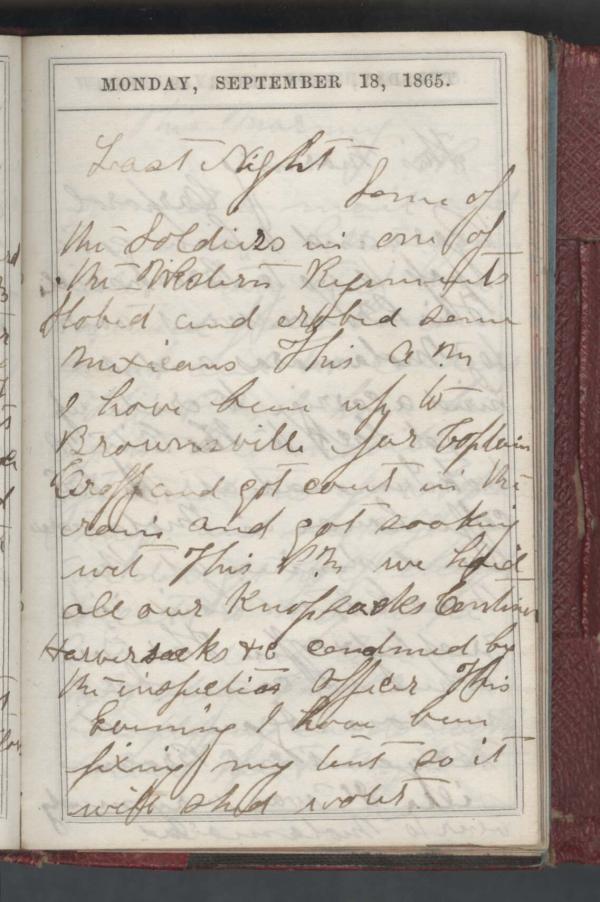 MONDAY, SEPTEMBER 18, 1865.
Last Night
Some of
the Soldiers in one of
the Western Regiments
and robed some
Mexicans This A M
I have been up to
Brownsville for Captain
and got cout in the
rain and got soaking
wet This P M we had
all our Knapsacks Canteens
Haversacks &c condmed by
the inspection Officer This
Evening I have been
fixing my tent so it
will shed water